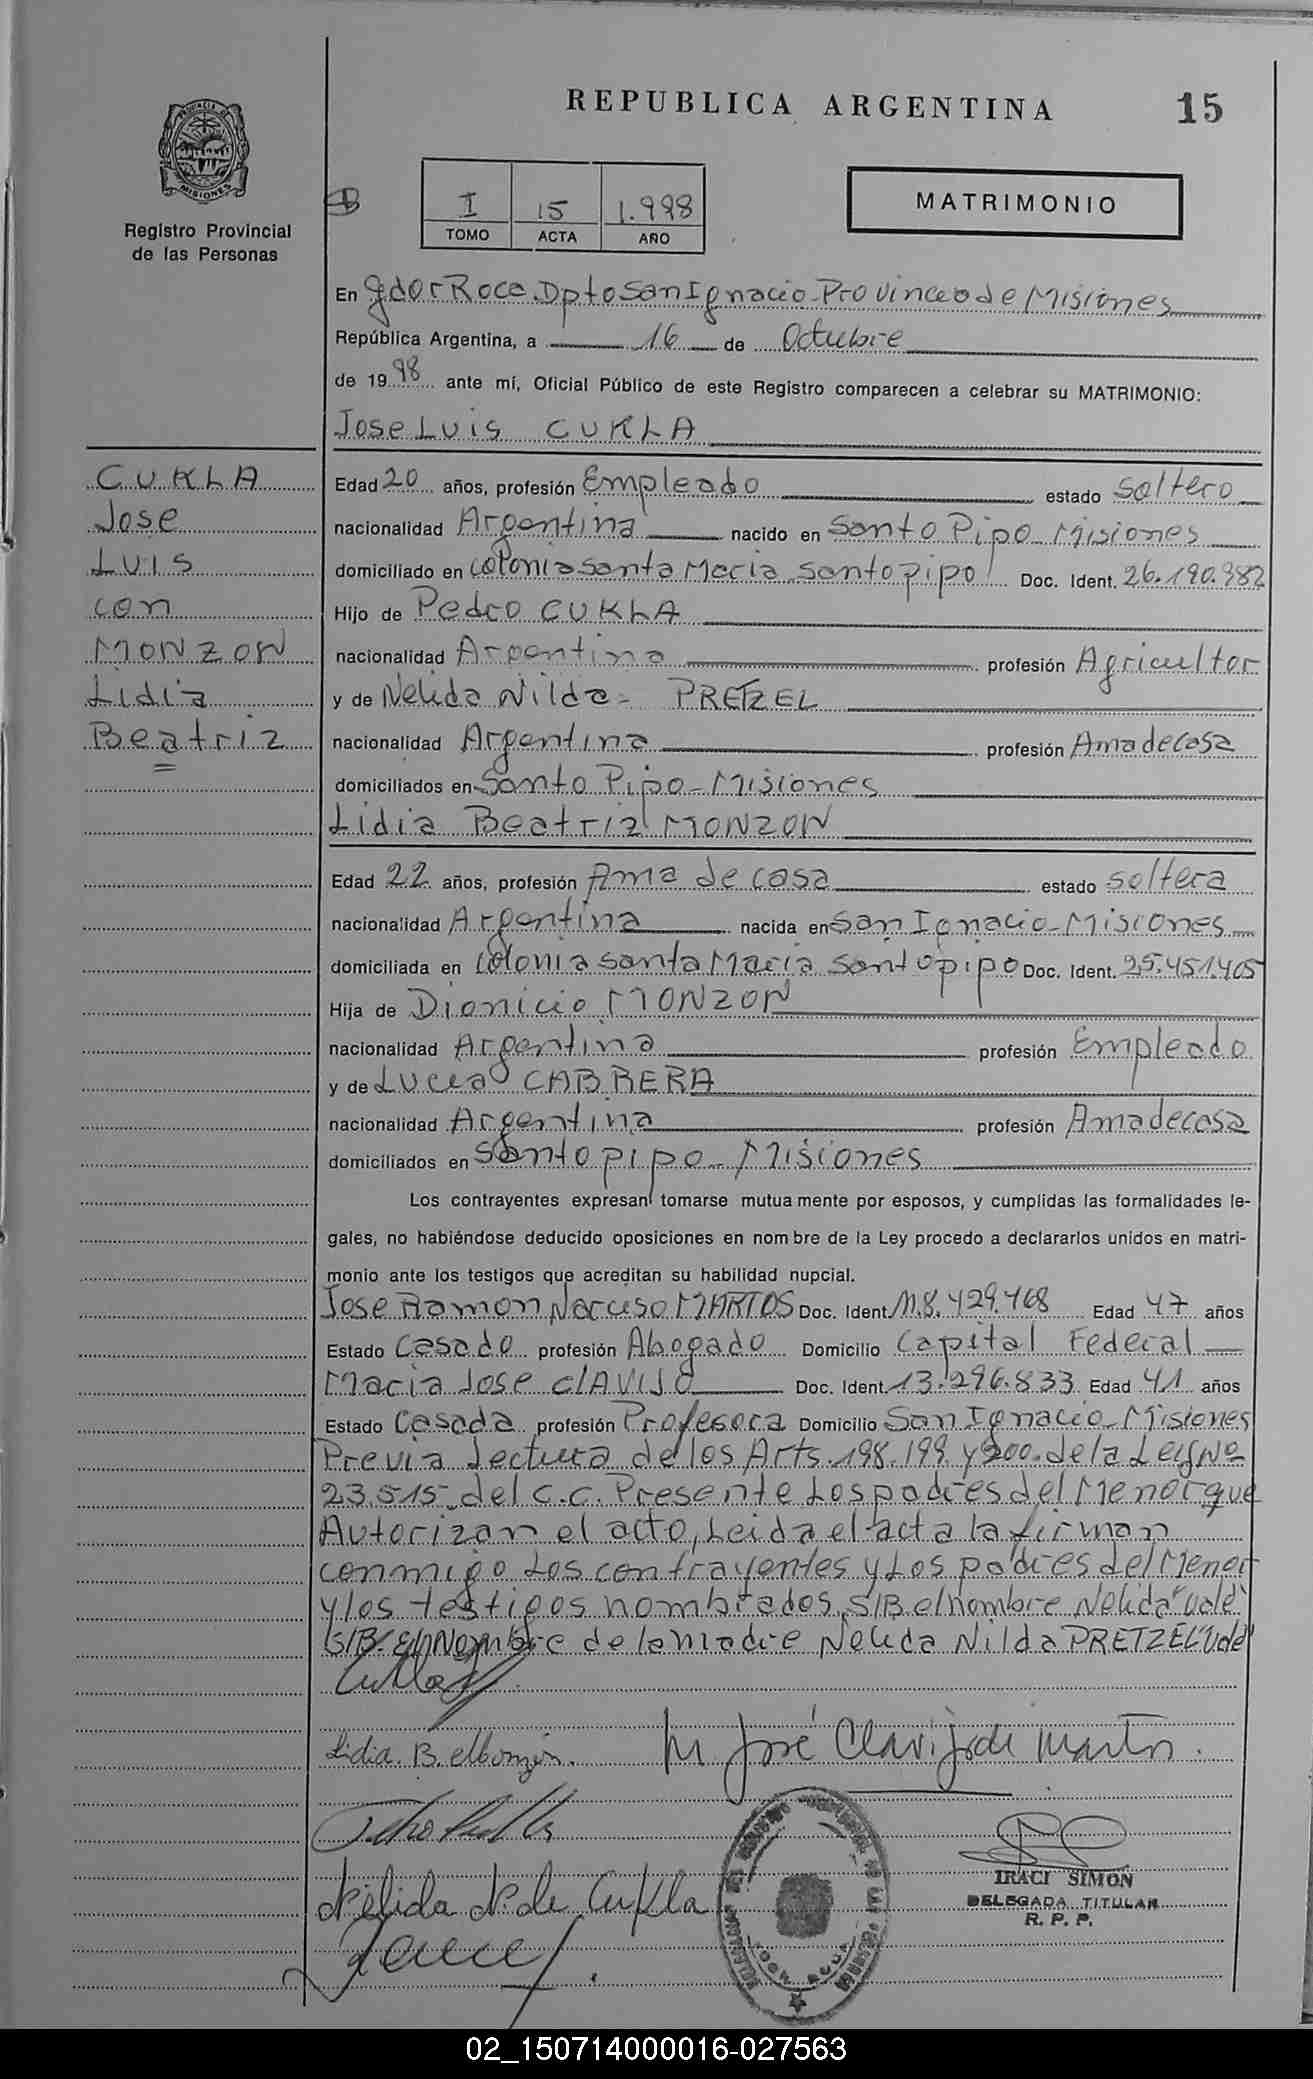 REPUBLICA ARGENTINA
15
MISIONES
Registro Provincial
de las Personas
I 15 1.998
TOMO ACTA AÑO
MATRIMONIO
En Gdor Roca. Dpto San Ignacio-Provincia de Misiones
República Argentina, a 16 de Octubre
de 1998 ante mí, Oficial Público de este Registro comparecen a celebrar su MATRIMONIO:
Jose Luis CUKLA
CUKLA
Jose
Luis
con
MONZON
Lidia
Beatriz
Edad 20 años, profesión Empleado estado soltero
nacionalidad Argentina nacido en Santo Pipo Misiones
domiciliado en Colonia Santa Maria Santo pipo Doc. Ident. 26.190.982
Hijo de Pedro CUKLA
nacionalidad Argentina profesión Agricultor
y de Nelida Nilda- PRETZEL
nacionalidad Argentina profesión Ama de casa
domiciliados en Santo Pipo-Misiones
Lidia Beatriz MONZON
Edad 22 años, profesión Ama de casa estado soltera
nacionalidad Argentina nacida en San Ignacio-Misiones
domiciliada en Colonia Santa Maria Santo pipo Doc. Ident. 25.451.405
Hija de Dionicio MONZON
nacionalidad Argentina profesión Empleado
y de Lucia CABRERA
nacionalidad Argentina profesión Ama de casa
domiciliados en Santo pipo-Misiones
Los contrayentes expresan tomarse mutua mente por esposos, y cumplidas las formalidades le-
gales, no habiéndose deducido oposiciones en nom bre de la Ley procedo a declararlos unidos en matri-
monio ante los testigos que acreditan su habilidad nupcial.
Jose Ramon Narciso MARTOS Doc. Ident. M.8.429.468 Edad 47 años
Estado Casado profesión Abogado Domicilio Capital Federal
Maria Jose CLAVIJO Doc. Ident. 13.296.833 Edad 41 años
Estado Casada profesión Profesora Domicilio San Ignacio-Misiones
Previa Lectura de los Arts. 198. 199. y 200. de la Ley Nº
23.515-del C.C. Presente Los padres del Menor que
Autorizan el acto, Leida el acta la firman
conmigo Los contrayentes y Los padres del Menor
y los testigos nombrados. S/B. el nombre Nelida "Vale"
S/B. El Nombre de la madre Nelida Nilda PRETZEL "Vale"
Cukla
Lidia. B. Monzón.
M José Clavijo de Martos.
Nélida P. de Cukla
IRACI SIMON
DELEGADA TITULAR
R. P. P.
02_150714000016-027563